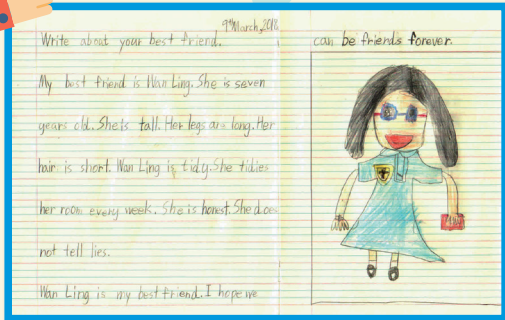 9th March, 2018
Write about your best friend.
My best friend is Wan Ling. She is seven
years old. She is tall. Her legs are long. Her
hair is short. Wan Ling is tidy. She tidies
her room every week. She is honest. She does
not tell lies.
Wan Ling is my best friend. I hope we
can be friends forever.